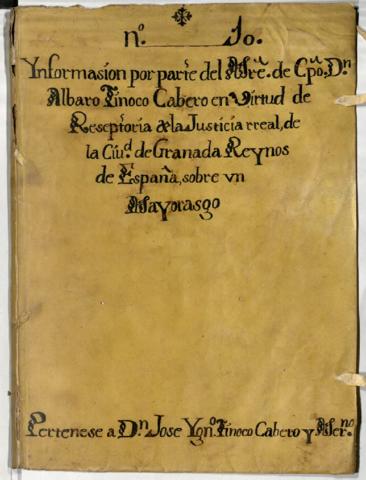 nº. 10.
Ynformasion por parte del Mrẽ. de Cpõ, Dn
Albaro Tinoco Cabero en virtud de
Reseptoria de la Justicia rreal, de
la Ciud. de Granada Reynos
de España, sobre vn
Mayorasgo
Pertenese a Dn. Jose Ygno. Tinoco Cabero y Herno.